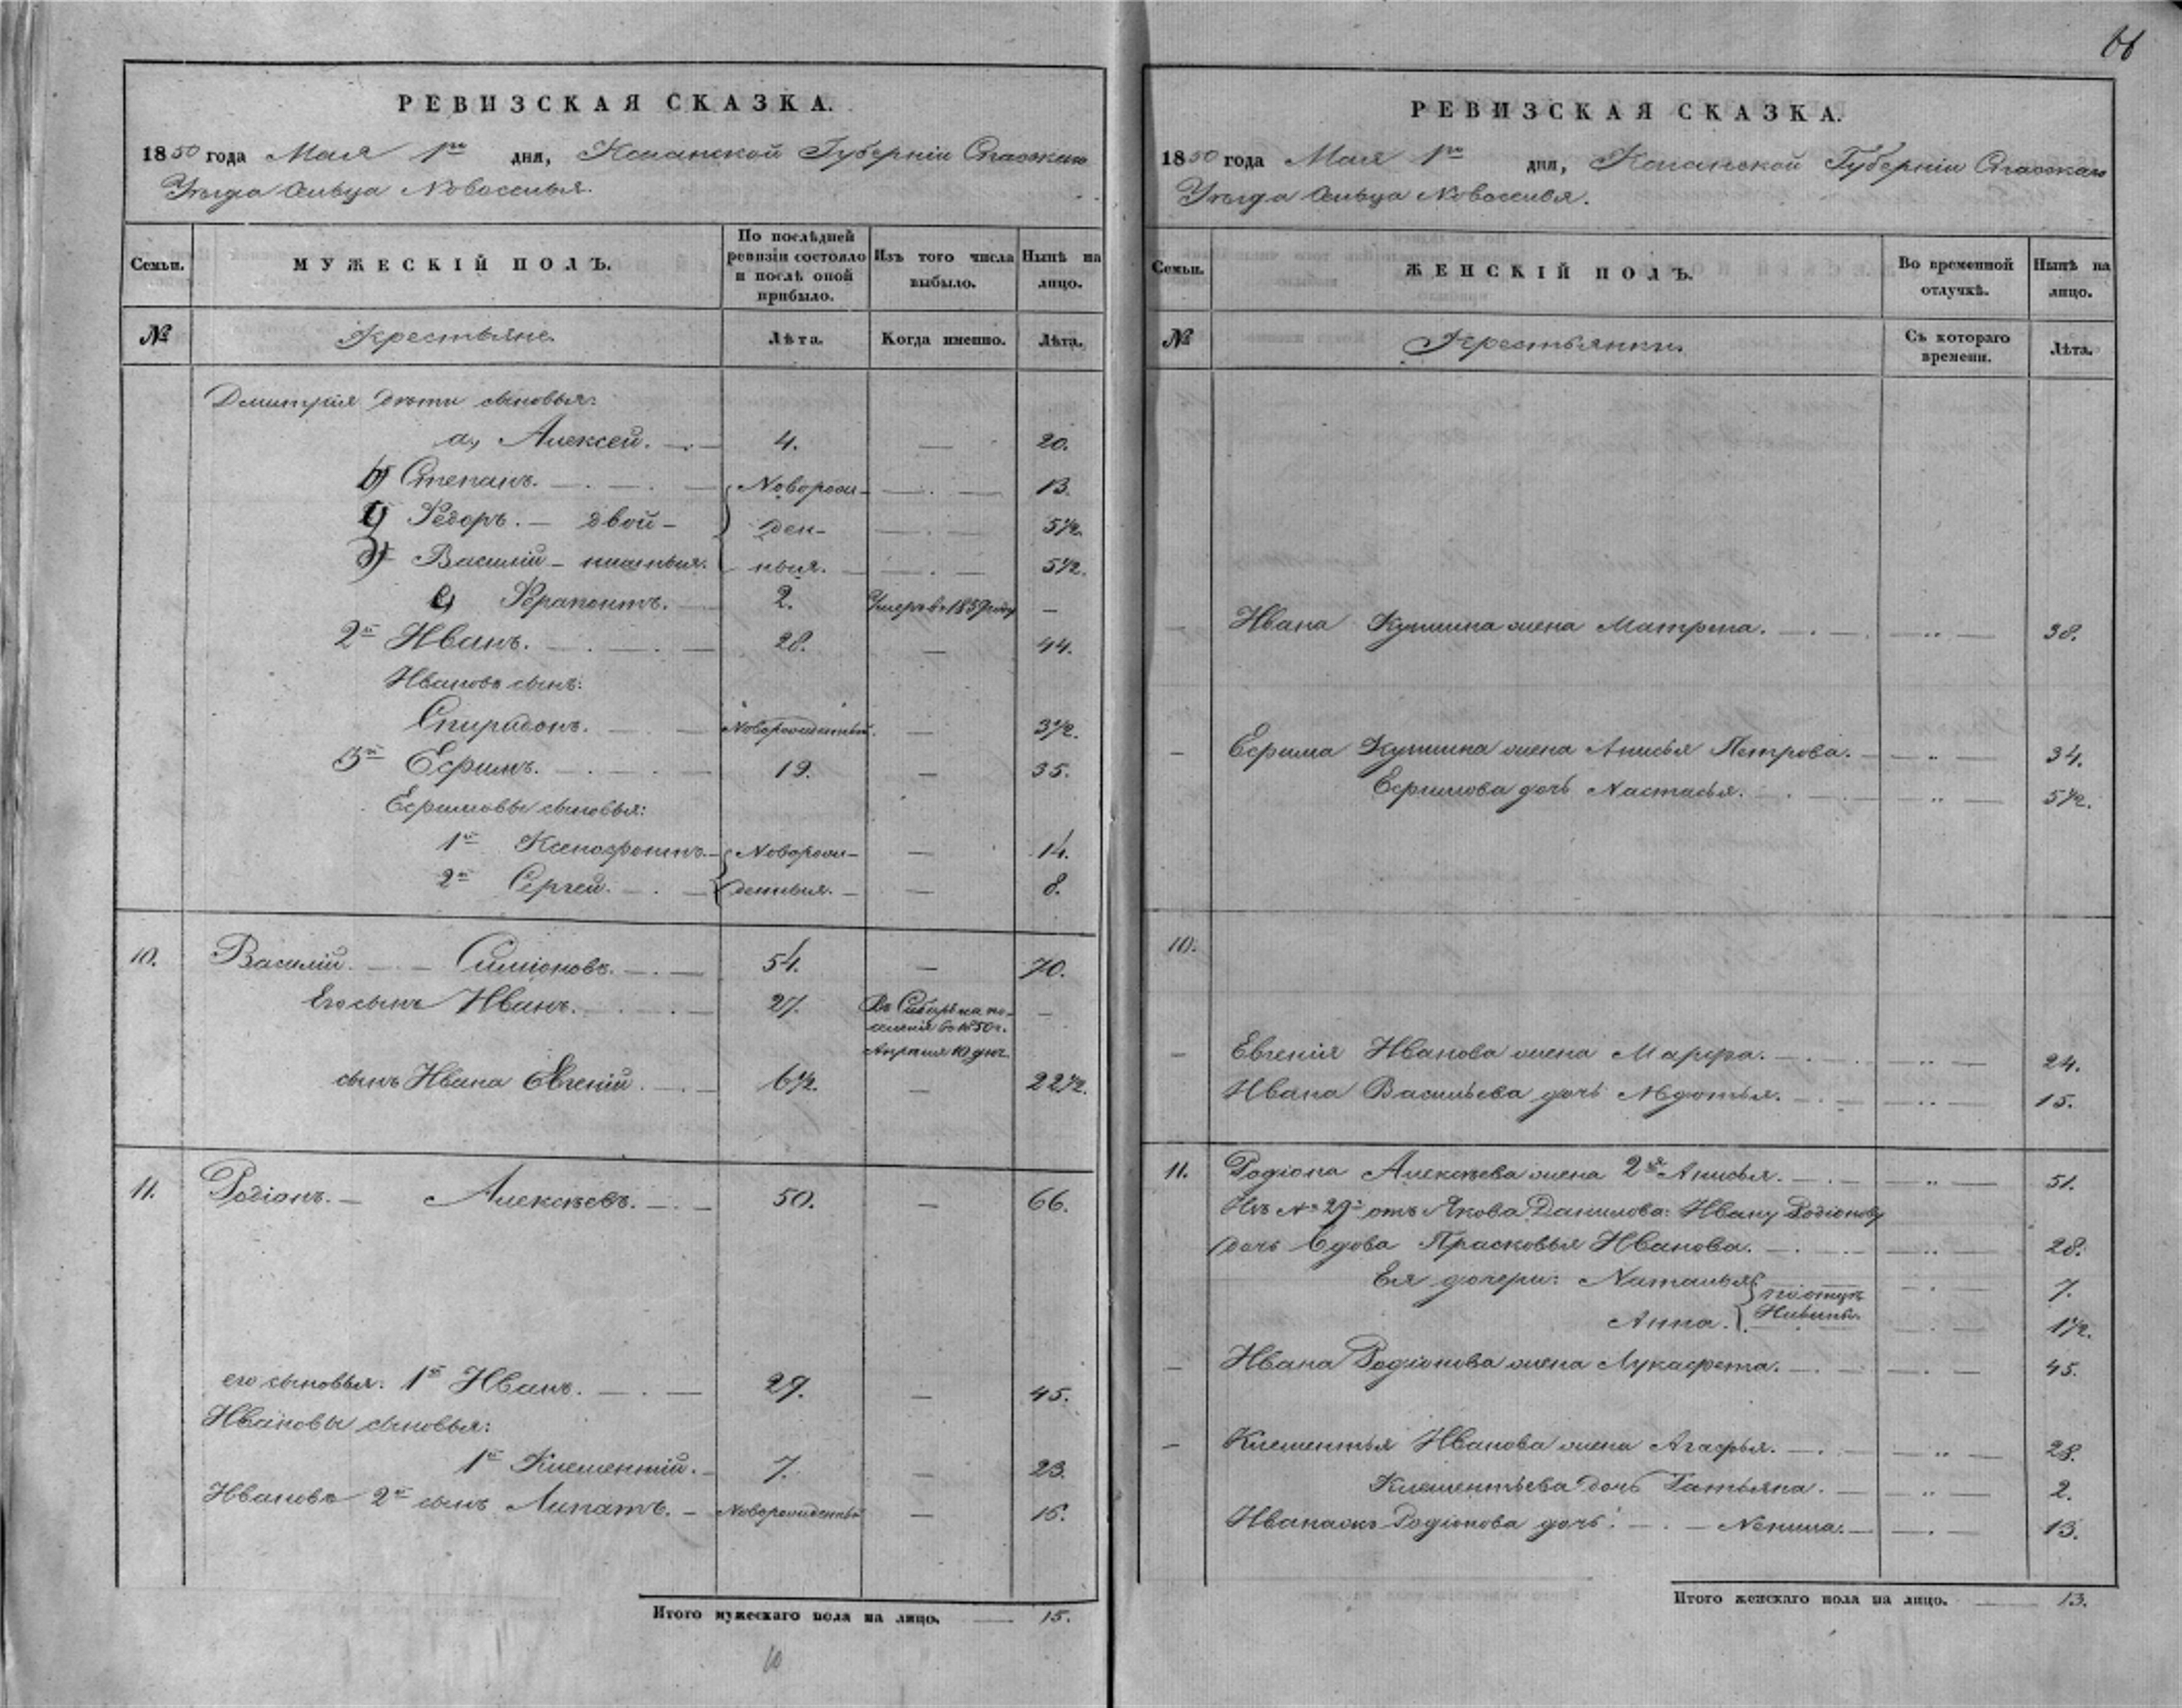 РЕВИЗСКАЯ СКАЗКА.
1850 года Мая 1го дня, Казанской Губерніи Спасскаго
Уѣзда Сельца Новоселья.
Семьи.
МУЖЕСКІЙ ПОЛЪ.
По послѣдней ревизіи состояло и послѣ оной прибыло.
Изъ того числа выбыло.
Нынѣ на лицо.
№
Крестьяне.
Лѣта.
Когда именно.
Лѣта.
Дмитрія дѣти сыновья:
а, Алексей. 4. — 20.
Степанъ. Новорож- — 13.
Федоръ. — двой- ден- — 5 1/2.
Василій — нишныя. ныя. — 5 1/2.
Ферапонтъ. 2. Умеръ въ 1839 году —
2й Иванъ. 28. — 44.
Ивановъ сынъ:
Спиридонъ. Новорожденный. — 3 1/2.
3й Ефимъ. 19. — 35.
Ефимовы сыновья:
1й Ксенофонтъ. Новорож- — 14.
2й Сергей. денныя. — 8.
10. Василій. Симіоновъ. 54. — 70.
Его сынъ Иванъ. 27. Въ Сибирь на по-
селенія въ 1850 г.
Апреля 10 дня —
сынъ Ивана Евгеній. 6 1/2. — 22 1/2.
11. Родіонъ. — Алексѣевъ. 50. — 66.
его сыновья: 1й Иванъ. 29. — 45.
Ивановы сыновья:
1й Клементій. 7. — 23.
Ивановъ 2й сынъ Липатъ. Новорожденный — 15.
Итого мужескаго пола на лицо. 15.
10
66
РЕВИЗСКАЯ СКАЗКА.
1850 года Мая 1го дня, Казанской Губерніи Спасскаго
Уѣзда Сельца Новоселья.
Семьи.
ЖЕНСКІЙ ПОЛЪ.
Во временной отлучкѣ.
Нынѣ на лицо.
№
Крестьянки.
Съ котораго времени.
Лѣта.
— Ивана Кузмина жена Матрена. — 38.
— Ефима Кузмина жена Анисья Петрова. — 34.
Ефимова дочь Настасья. — 5 1/2.
10.
— Евгенія Иванова жена Марфа. — 24.
Ивана Васильева дочь Авдотья. — 15.
11. Родіона Алексѣева жена 2я Анисья. — 51.
Изъ № 29го отъ Якова Данилова: Ивану Родіонову
дочь вдова Прасковья Иванова. — 28.
Ея дочери: Наталья — 7.
по отцѣ
Анна. — 1 1/2.
— Ивана Родіонова жена Лукафета. — 45.
— Клементья Иванова жена Агафья. — 28.
Клементьева дочь Татьяна. — 2.
Родіонова дочь: — 13.
Итого женскаго пола на лицо. 13.